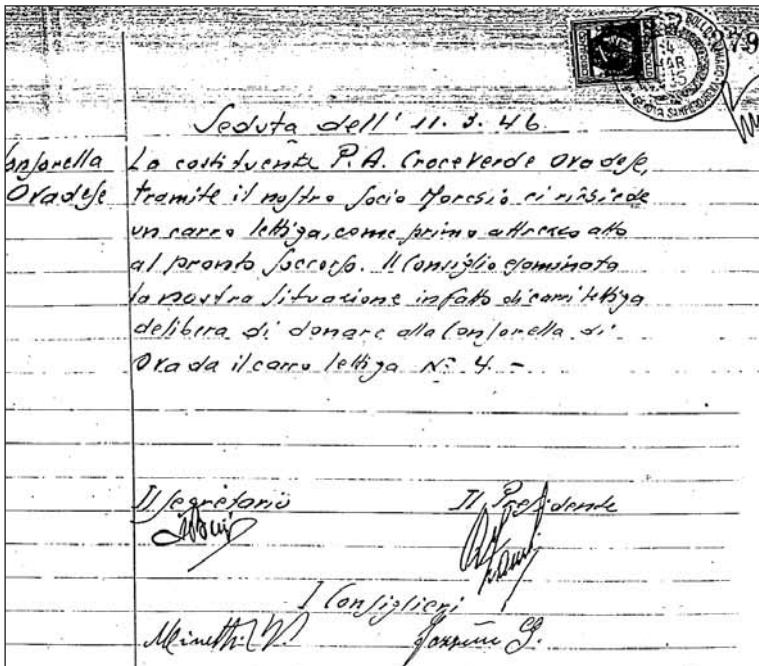 79
Seduta dell' 11.3.46.
Consorella La costituenta P.A. Croce Verde Ovadese,
Ovadese tramite il nostro socio Moresio ci richiede
un carro lettiga, come primo attrezzo atto
al pronto soccorso. Il Consiglio esaminata
la nostra situazione in fatto di carri lettiga
delibera di donare alla Consorella di
Ovada il carro lettiga N° 4. -
Il segretario Il Presidente
I Consiglieri
Minetti